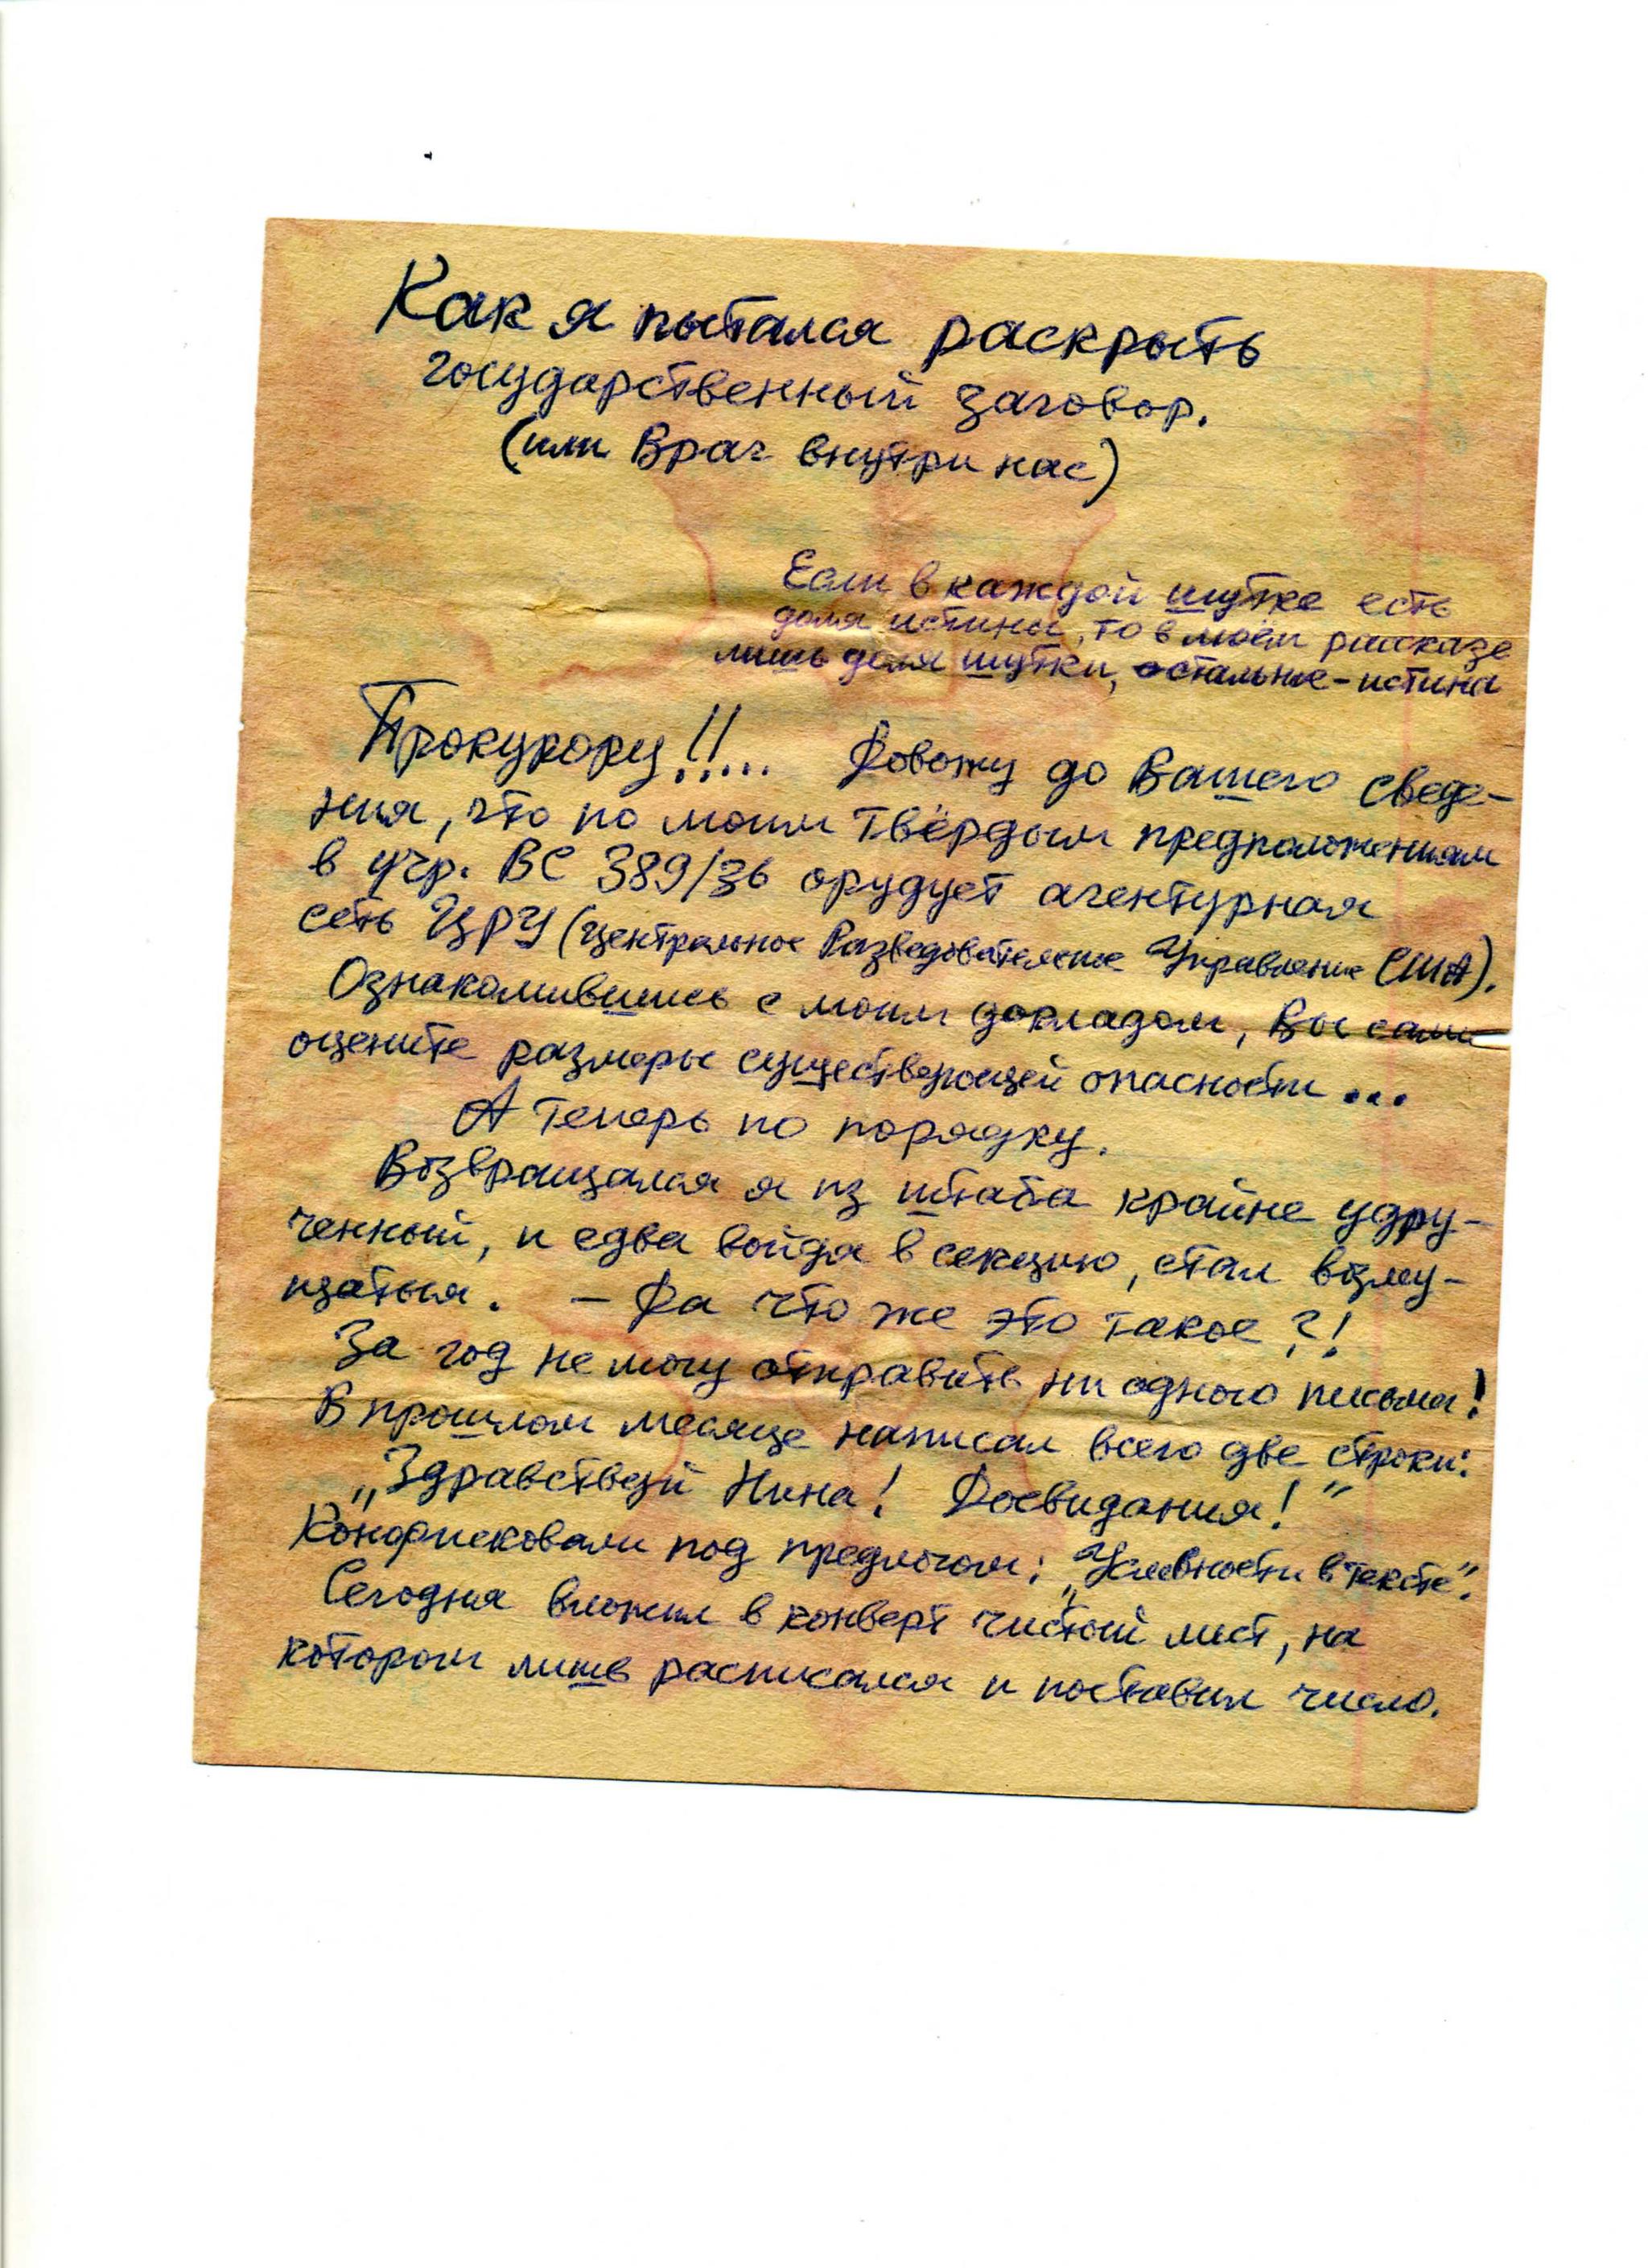 Как я пытался раскрыть
государственный заговор.
(или Враг внутри нас)
Если в каждой шутке есть
доля истины, то в моём рассказе
лишь доля шутки, остальное - истина
Прокурору!!... Довожу до Вашего сведе-
ния, что по моим твёрдым предположениям
в учр. ВС 389/36 орудует агентурная
сеть ЦРУ (Центральное Разведовательное Управление США).
Ознакомившись с моим докладом, Вы сами
оцените размеры существующей опасности...
А теперь по порядку.
Возвращался я из штаба крайне удру-
ченный, и едва войдя в секцию, стал возму-
щаться. - Да что же это такое?!
За год не могу отправить ни одного письма!
В прошлом месяце написал всего две строки:
„Здравствуй Нина! Досвидания!"
Конфисковали под предлогом: „Условности в тексте".
Сегодня вложил в конверт чистый лист, на
котором лишь расписался и поставил число.